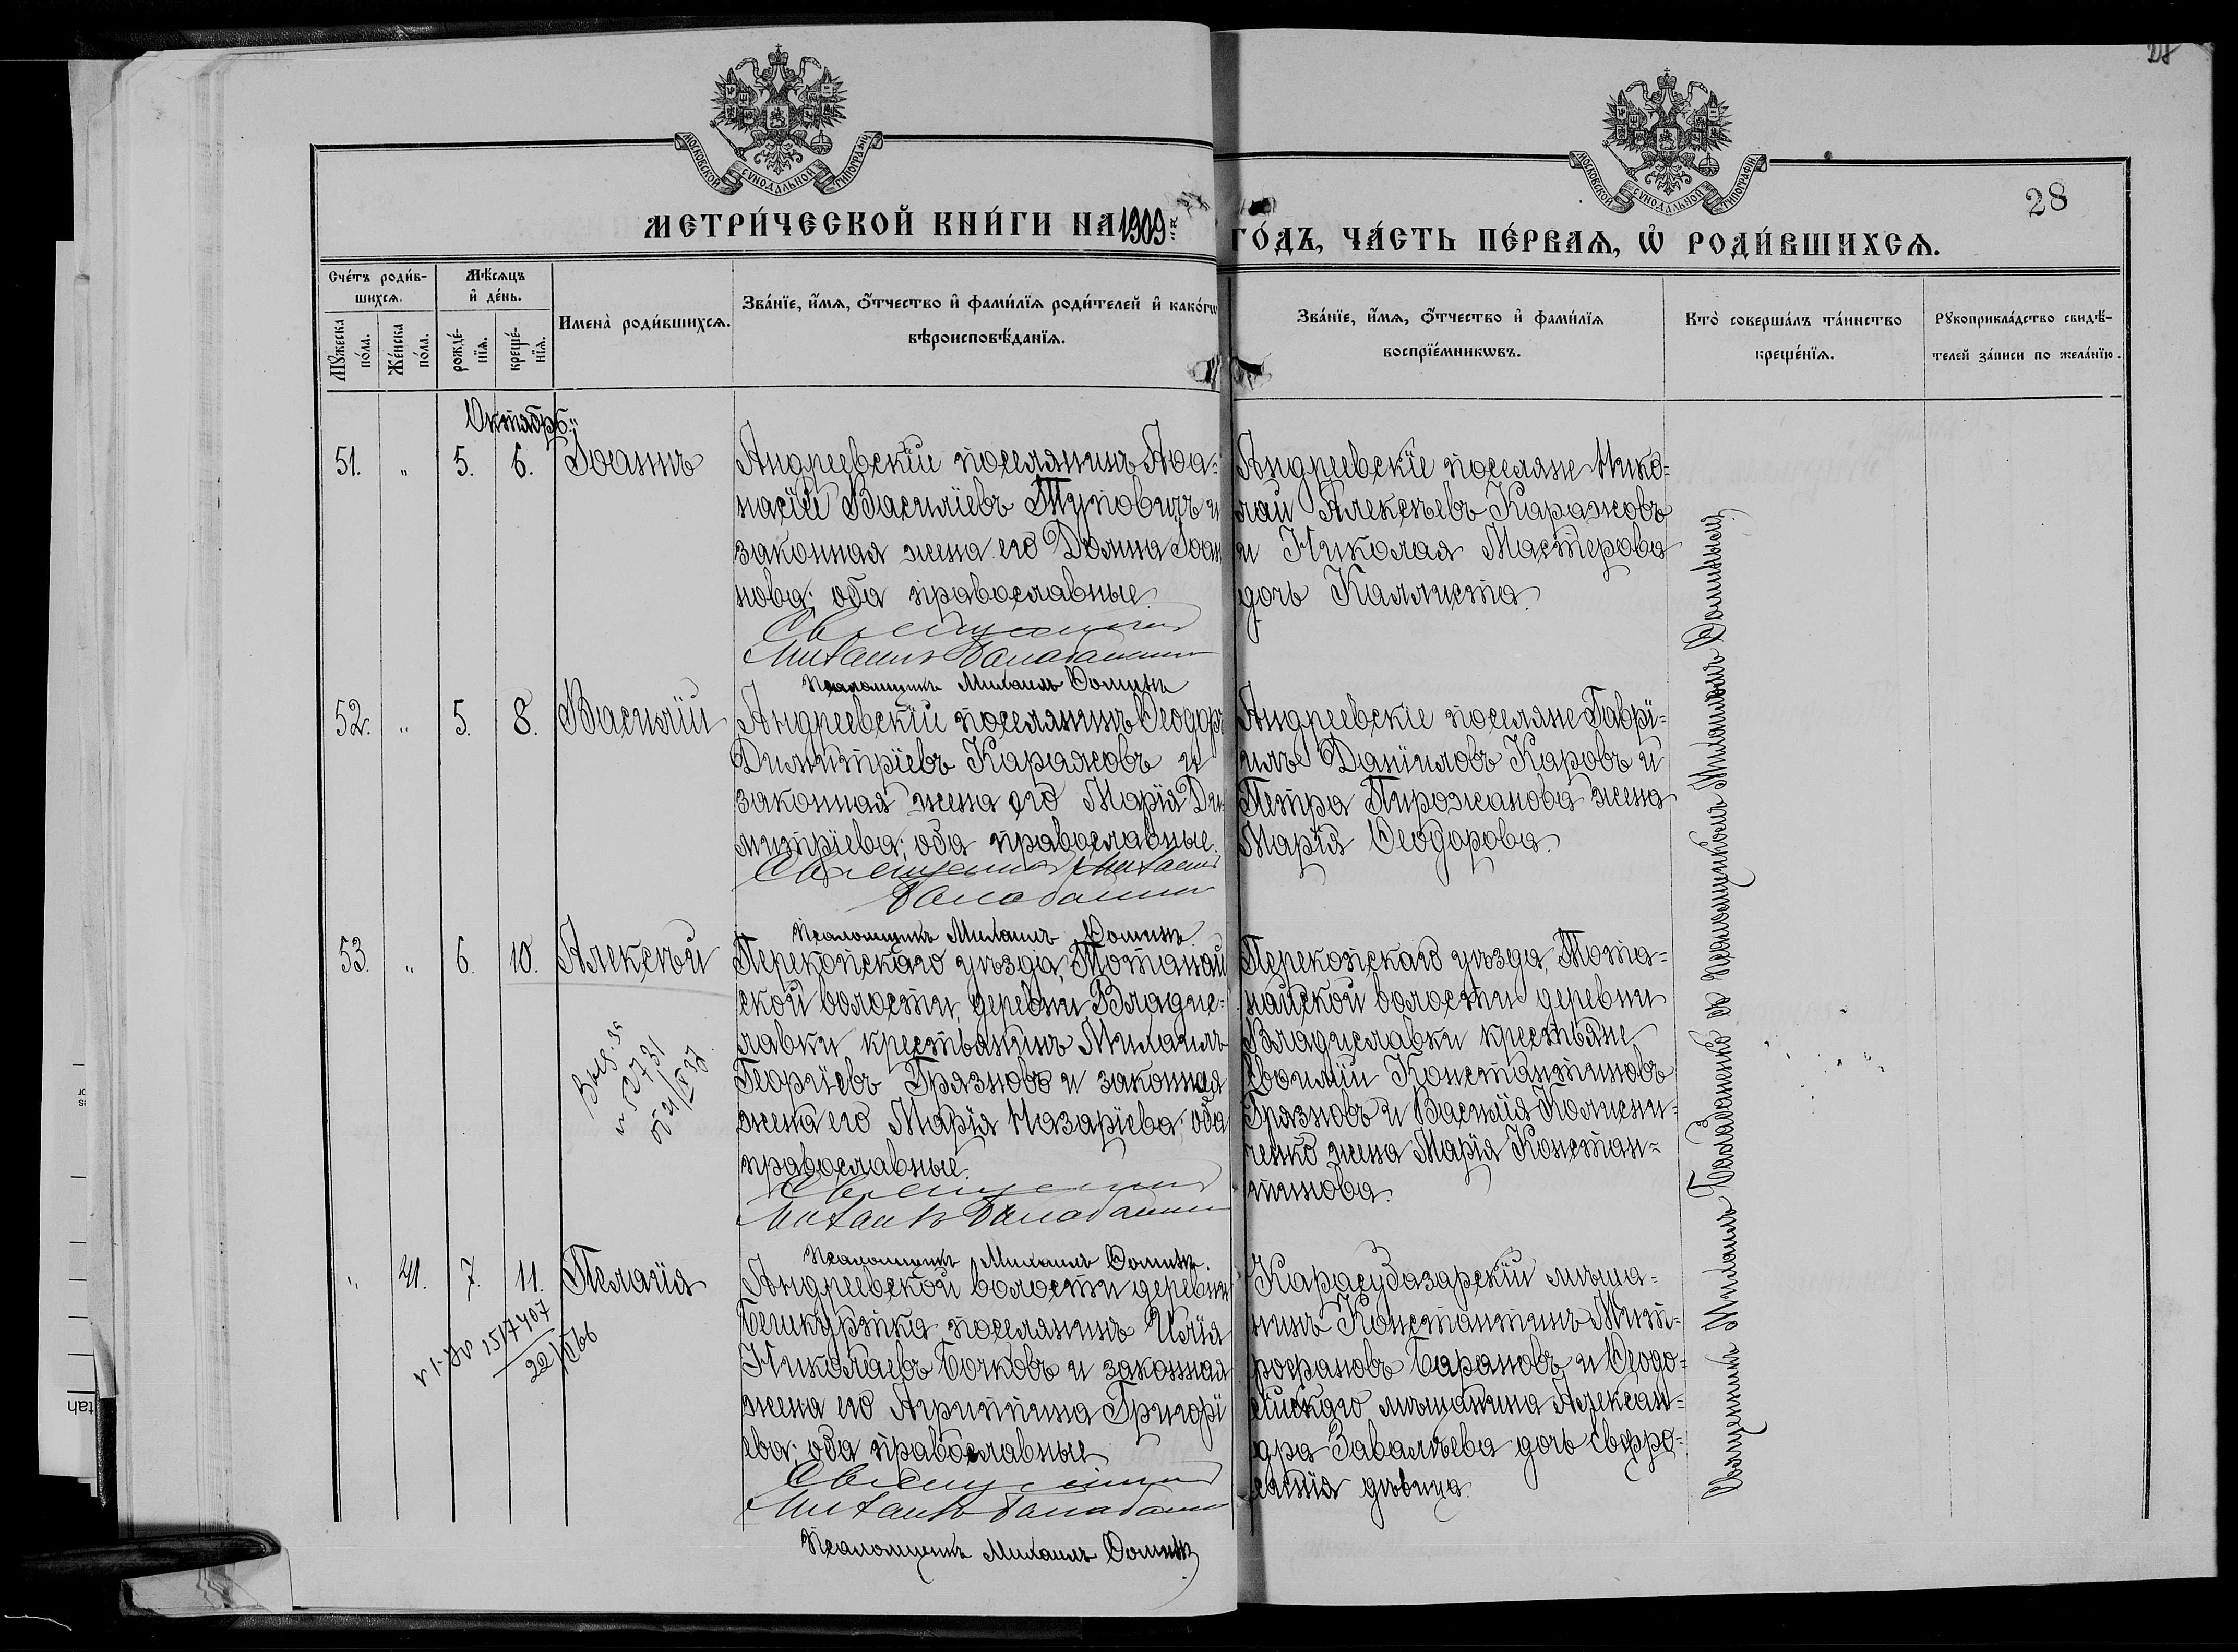 28
МОСКОВСКОЙ СѴНОДАЛЬНОЙ ТИПОГРАФІИ
МОСКОВСКОЙ СѴНОДАЛЬНОЙ ТИПОГРАФІИ
28
МЕТРИ́ЧЕСКОЙ КНИ́ГИ НА 1909 й
ГО́ДЪ, ЧА́СТЬ ПЕ́РВАѦ, Ѡ҆ РОДИ́ВШИХСѦ.
Сче́тъ роди́в-
шихсѧ.
Мꙋ́жеска
по́ла.
Же́нска
по́ла.
Мѣ́сѧцъ
и҆ де́нь.
рожде́-
нїѧ.
креще́-
нїѧ.
Имена̀ роди́вшихсѧ.
Зва́нїе, и҆́мѧ, ѻ҆́тчество и҆ фами́лїѧ роди́телей и҆ како́гѡ
вѣроисповѣ́данїѧ.
Зва́нїе, и҆́мѧ, ѻ҆́тчество и҆ фами́лїѧ
воспрїе́мникѡвъ.
Кто̀ соверша́лъ та́инство
креще́нїѧ.
Рꙋкоприкла́дство свидѣ́-
телей за́писи по жела́нїю.
Октябрь
51. " 5. 6. Іоаннъ
Андреевскій поселянинъ Аѳа-
насій Василіевъ Туповичъ и
законная жена его Домна Іоан
нова; оба православные.
Священникъ
Михаилъ Баладаненко
Псаломщикъ Михаилъ Ѳоминъ
Андреевскіе поселяне Нико-
лай Алексѣевъ Каражовъ
и Николая Мастерова
дочь Каллиста.
52. " 5. 8. Василій
Андреевскій поселянинъ Ѳеодоръ
Димитріевъ Каражовъ и
законная жена его Марія Ди-
митріева; оба православные.
Священникъ Михаилъ
Баладаненко
Псаломщикъ Михаилъ Ѳоминъ.
Андреевскіе поселяне Гаврі-
илъ Даніиловъ Каровъ и
Петра Пирожанова жена
Марія Ѳеодорова.
53. " 6. 10. Алексѣй
Перекопскаго уѣзда, Тотанай
ской волости, деревни Владис-
лавки крестьянинъ Михаилъ
Георгіевъ Грязновъ и законная
жена его Марія Назаріева; оба
православные.
Священникъ
Михаилъ Баладаненко
Псаломщикъ Михаилъ Ѳоминъ.
Перекопскаго уѣзда, Тота-
найской волости деревни
Владиславки крестьяне
Евѳимій Константиновъ
Грязновъ и Василія Колисни-
ченко жена Марія Констан-
тинова.
" 41. 7. 11. Пелагія
Андреевской волости деревни
Бешкуртка поселянинъ Илія
Николаевъ Бочковъ и законная
жена его Агриппина Григорі
ева; оба православные
Священникъ
Михаилъ Баладаненко
Псаломщикъ Михаилъ Ѳоминъ
Карасубазарскій мѣща-
нинъ Константинъ Мит-
рофановъ Барановъ и Ѳеодо-
сійскаго мѣщанина Алексан-
дра Завалѣева дочь Евфро-
синія дѣвица.
Священникъ Михаилъ Баладаненко съ псаломщикомъ Михаиломъ Ѳоминымъ